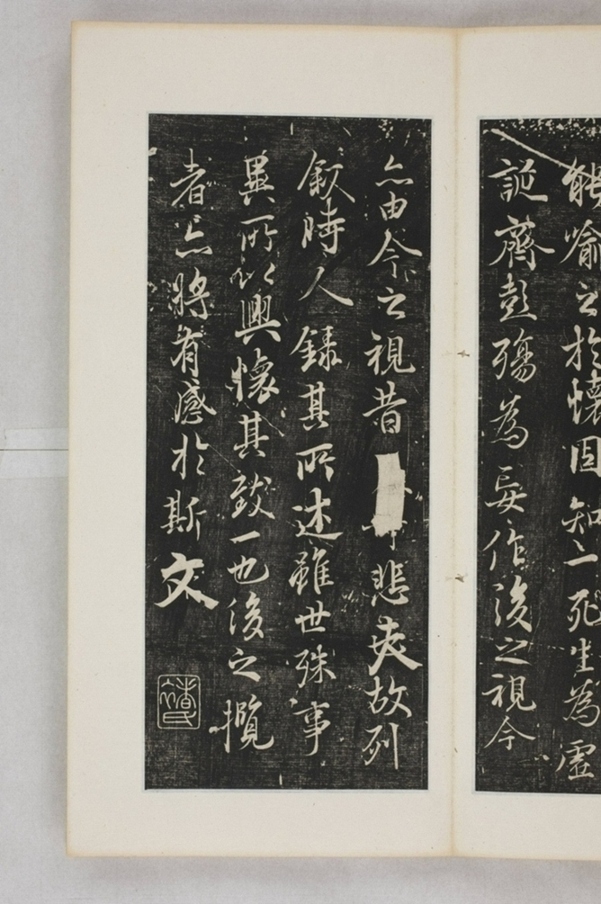 能喻之於懷固知一死生為虛
誕齊彭殤為妄作後之視今
亦由今之視昔悲夫故列
敘時人錄其所述雖世殊事
異所以興懷其致一也後之攬
者亦將有感於斯文